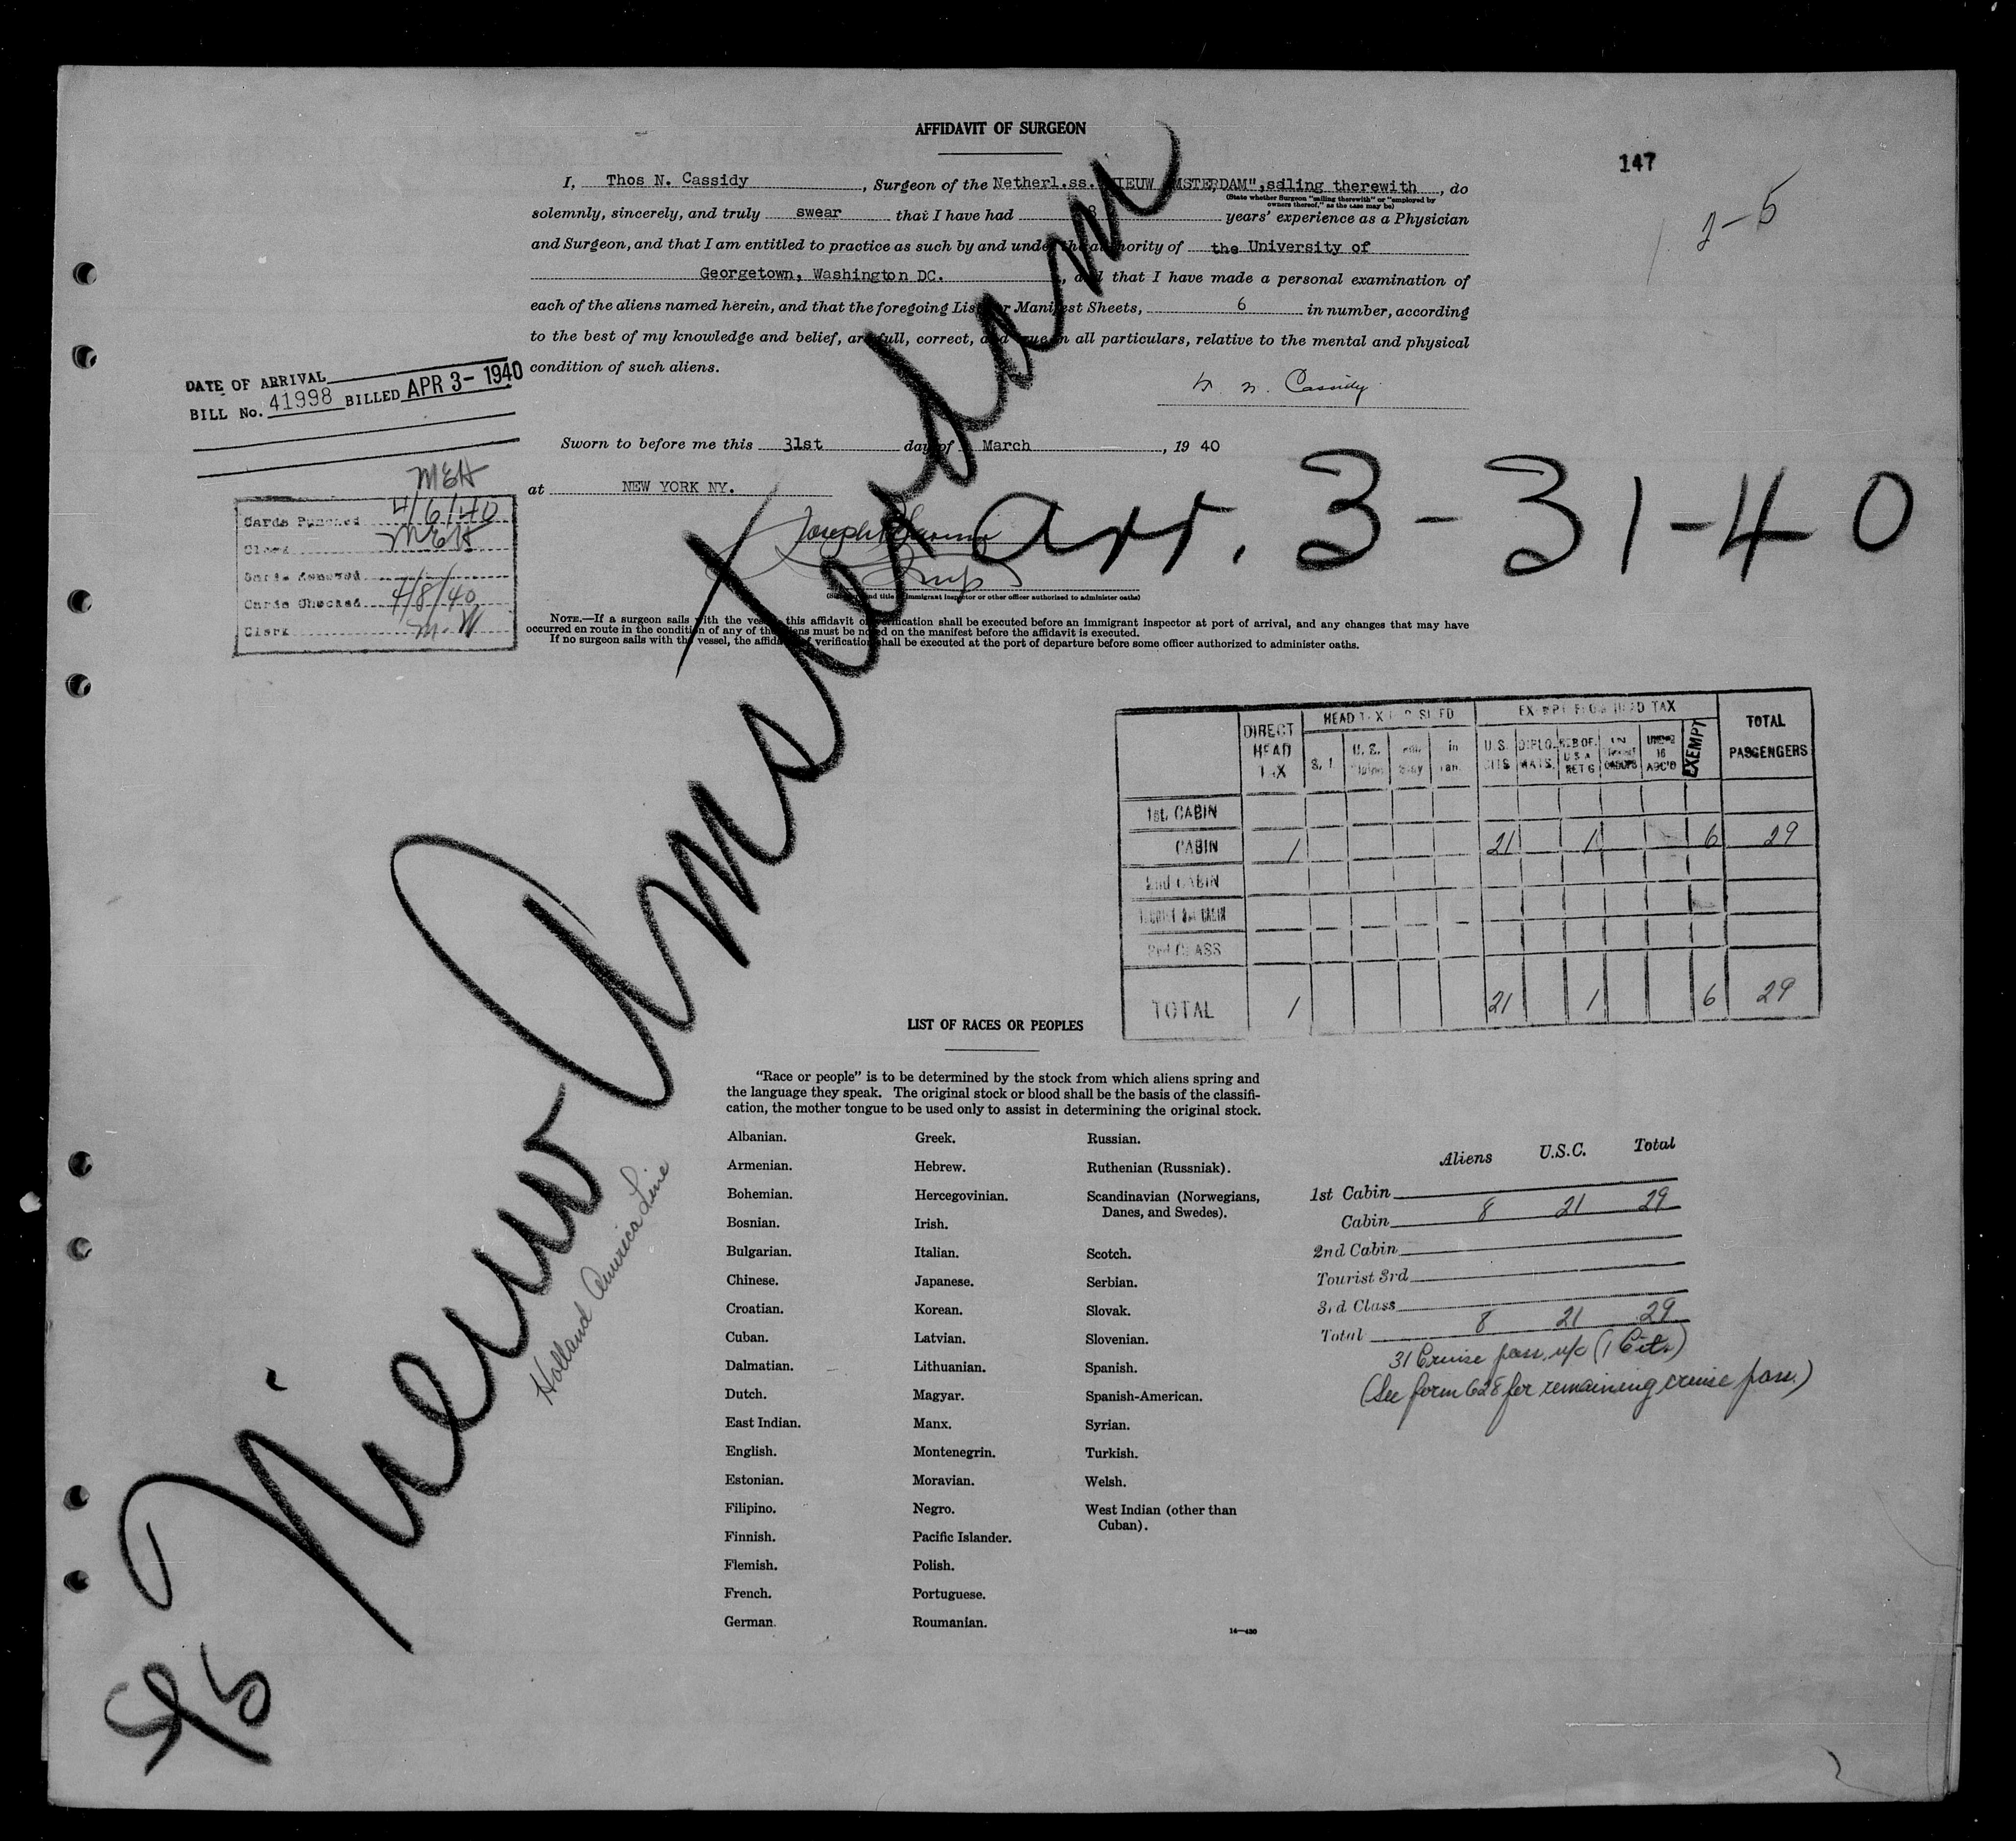 AFFIDAVIT OF SURGEON
147
2-5
I, Thos N. Cassidy, Surgeon of the Netherl.ss. "NIEUW AMSTERDAM", sailing therewith, do
(State whether Surgeon "sailing therewith" or "employed by
owners thereof," as the case may be)
solemnly, sincerely, and truly swear that I have had 8 years' experience as a Physician
and Surgeon, and that I am entitled to practice as such by and under the authority of the University of
Georgetown, Washington DC., and that I have made a personal examination of
each of the aliens named herein, and that the foregoing List or Manifest Sheets, 6 in number, according
to the best of my knowledge and belief, are full, correct, and true in all particulars, relative to the mental and physical
condition of such aliens.
Cassidy
DATE OF ARRIVAL
BILL No. 41998 BILLED APR 3- 1940
Sworn to before me this 31st day of March, 19 40
at NEW YORK NY.
arr. 3-31-40
MEH
Cards Punched 4/6/40
Clerk MEH
Cards Checked 4/8/40
Clerk M.W
Joseph
Insp
(Signature and title of immigrant inspector or other officer authorized to administer oaths)
NOTE.—If a surgeon sails with the vessel, this affidavit or verification shall be executed before an immigrant inspector at port of arrival, and any changes that may have
occurred en route in the condition of any of the aliens must be noted on the manifest before the affidavit is executed.
If no surgeon sails with the vessel, the affidavit of verification shall be executed at the port of departure before some officer authorized to administer oaths.
SS Nieuw Amsterdam
Holland America Line
DIRECT HEAD TAX
EXEMPT FROM HEAD TAX
U.S. CITS
DIPLOMATS.
EXEMPT
TOTAL PASSENGERS
1st CABIN
CABIN 1 21 1 6 29
2nd CABIN
3rd CLASS
TOTAL 1 21 1 6 29
LIST OF RACES OR PEOPLES
"Race or people" is to be determined by the stock from which aliens spring and
the language they speak. The original stock or blood shall be the basis of the classifi-
cation, the mother tongue to be used only to assist in determining the original stock.
Albanian.
Armenian.
Bohemian.
Bosnian.
Bulgarian.
Chinese.
Croatian.
Cuban.
Dalmatian.
Dutch.
East Indian.
English.
Estonian.
Filipino.
Finnish.
Flemish.
French.
German.
Greek.
Hebrew.
Hercegovinian.
Irish.
Italian.
Japanese.
Korean.
Latvian.
Lithuanian.
Magyar.
Manx.
Montenegrin.
Moravian.
Negro.
Pacific Islander.
Polish.
Portuguese.
Roumanian.
Russian.
Ruthenian (Russniak).
Scandinavian (Norwegians,
Danes, and Swedes).
Scotch.
Serbian.
Slovak.
Slovenian.
Spanish.
Spanish-American.
Syrian.
Turkish.
Welsh.
West Indian (other than
Cuban).
14—430
Aliens U.S.C. Total
1st Cabin
Cabin 8 21 29
2nd Cabin
Tourist 3rd
3rd Class
Total 8 21 29
31 Cruise pass. u/c (1 Cit.)
(See form 628 for remaining cruise pass.)